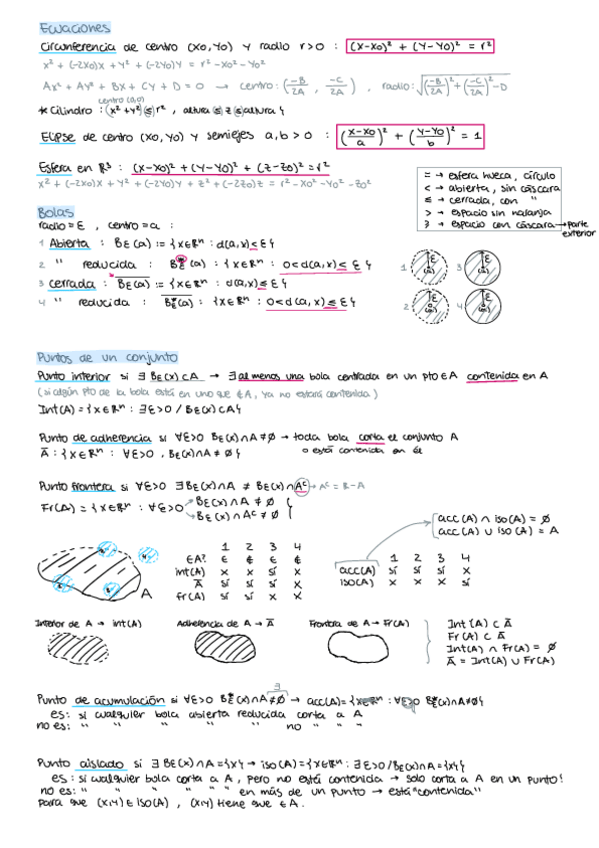 Ecuaciones
Circunferencia de centro (X0,Y0) y radio r>0 : (X-X0)² + (Y-Y0)² = r²
x² + (-2X0)X + Y² + (-2Y0)Y = r² - X0² - Y0²
AX² + AY² + BX + CY + D = 0 → centro: (-B/2A , -C/2A) , radio: √((-B/2A)² + (-C/2A)² - D
centro (0,0)
* Cilindro : (x² + y²) ≤ r² , altura ≤ z ≤ altura }
Elipse de centro (X0,Y0) y semiejes a,b > 0 : (X-X0/a)² + (Y-Y0/b)² = 1
Esfera en R³ : (X-X0)² + (Y-Y0)² + (Z-Z0)² = r²
x² + (-2X0)X + Y² + (-2Y0)Y + Z² + (-2Z0)Z = r² - X0² - Y0² - Z0²
= → esfera hueca, círculo
< → abierta, sin cáscara
≤ → cerrada, con "
> → espacio sin naranja
≥ → espacio con cáscara → parte exterior
Bolas
radio = ε , centro = a :
1 Abierta : Bε(a) := {x∈Rⁿ : d(a,x) ≤ ε}
2 " reducida : Bε*(a) : {x∈Rⁿ : 0<d(a,x) ≤ ε}
3 Cerrada : Bε(a) := {x∈Rⁿ : d(a,x) ≤ ε}
4 " reducida : Bε*(a) : {x∈Rⁿ : 0<d(a,x) ≤ ε}
1 ε (a) 3 ε (a)
2 ε (a) 4 ε (a)
Puntos de un conjunto
Punto interior si ∃ Bε(x)⊂A → ∃ al menos una bola centrada en un pto ∈ A contenida en A
(si algún pto de la bola está en uno que ∉ A, ya no estará contenida)
Int(A) = {x∈Rⁿ : ∃ε>0 / Bε(x)⊂A}
Punto de adherencia si ∀ε>0 Bε(x)∩A≠∅ → toda bola corta el conjunto A
o está contenida en él
A : {x∈Rⁿ : ∀ε>0 , Bε(x)∩A ≠ ∅}
Punto frontera si ∀ε>0 ∃Bε(x)∩A ≠ Bε(x)∩Aᶜ → Aᶜ = R-A
Fr(A) = {x∈Rⁿ : ∀ε>0 Bε(x)∩A ≠ ∅
Bε(x)∩Aᶜ ≠ ∅ }
acc(A) ∩ iso(A) = ∅
acc(A) ∪ iso(A) = A
1 2 3 4
∈A? ∈ ∉ ∈ ∉
int(A) x x sí x
A sí sí sí x
Fr(A) sí sí x x
A
1 2 3 4
acc(A) sí sí sí x
iso(A) x x x x
Interior de A → int(A)
Adherencia de A → A
Frontera de A → Fr(A)
Int(A) ⊂ A
Fr(A) ⊂ A
Int(A) ∩ Fr(A) = ∅
A = Int(A) ∪ Fr(A)
∃
Punto de acumulación si ∀ε>0 Bε*(x)∩A≠∅ → acc(A) = {x∈Rⁿ : ∀ε>0 Bε*(x)∩A≠∅}
es: si cualquier bola abierta reducida corta a A
no es: " " " " " no " "
Punto aislado si ∃ Bε(x)∩A={x} → iso(A) = {x∈Rⁿ : ∃ε>0/Bε(x)∩A={x}}
es: si cualquier bola corta a A, pero no está contenida → solo corta a A en un punto!
no es: " " " " " en más de un punto → está "contenida"
Para que (x,y) ∈ ISO(A) , (x,y) tiene que ∈ A.